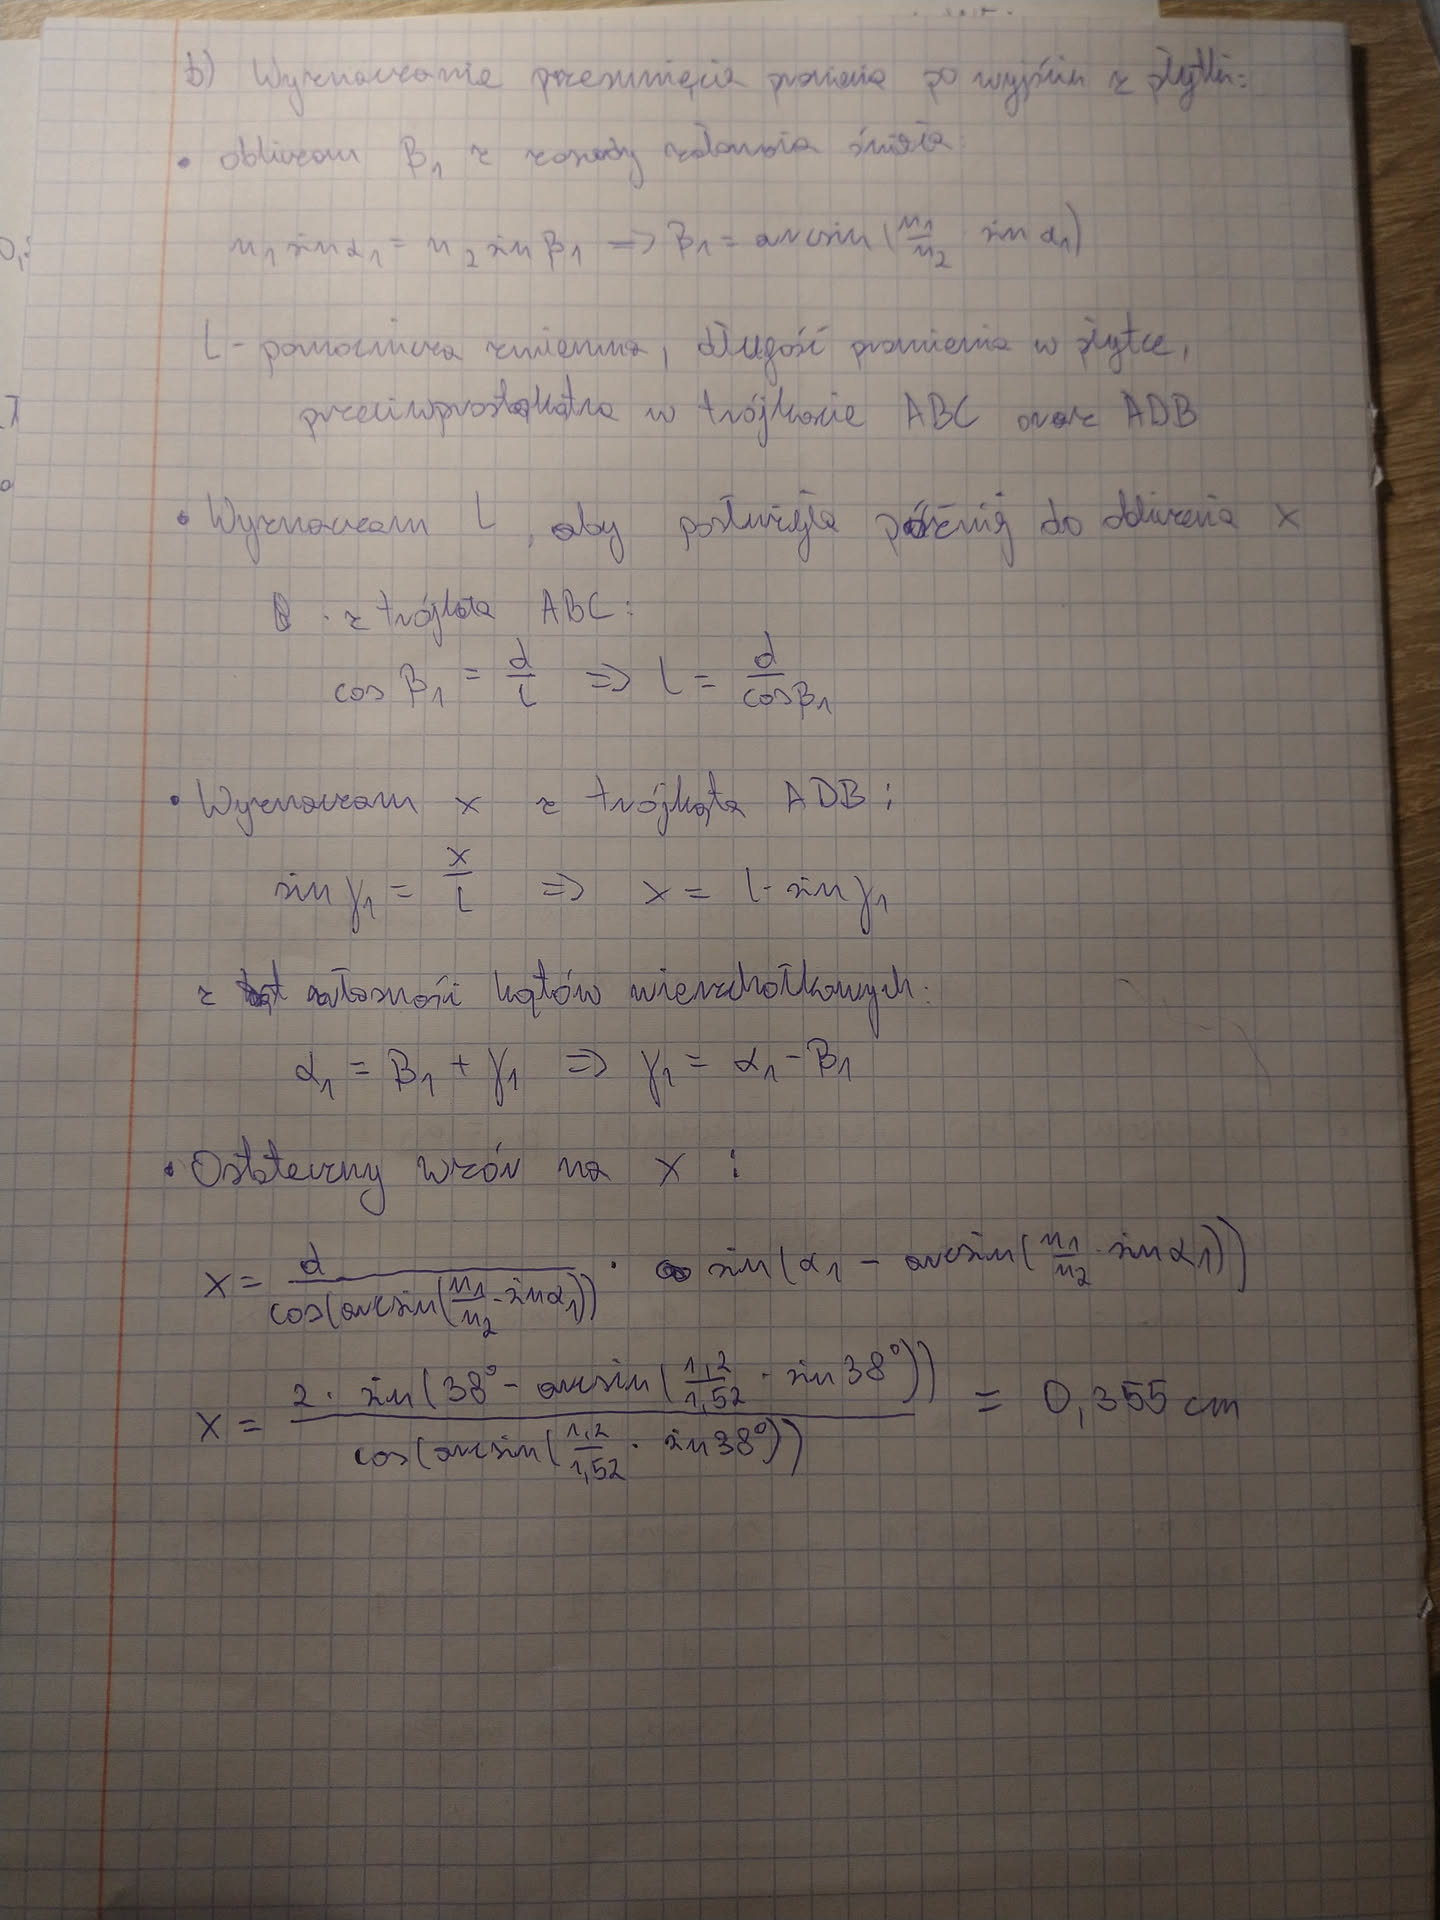 b) Wyznaczanie przesunięcia promienia po wyjściu z płytki:
• obliczam β₁ z zasady załamania światła:
n₁ sin α₁ = n₂ sin β₁ => β₁ = arcsin (n₁/n₂ · sin α₁)
l - pomocnicza zmienna, długość promienia w płytce,
przeciwprostokątna w trójkącie ABC oraz ADB
• Wyznaczam l, aby posłużyła później do obliczenia x
z trójkąta ABC:
cos β₁ = d/l => l = d/cosβ₁
• Wyznaczam x z trójkąta ADB:
sin γ₁ = x/l => x = l · sin γ₁
z własności kątów wierzchołkowych:
α₁ = β₁ + γ₁ => γ₁ = α₁ - β₁
• Ostateczny wzór na x :
x = d/cos(arcsin(n₁/n₂ · sin α₁)) · sin(α₁ - arcsin(n₁/n₂ · sin α₁))
x = 2 · sin(38° - arcsin(1,2/1,52 · sin 38°))/cos(arcsin(1,2/1,52 · sin 38°)) = 0,355 cm